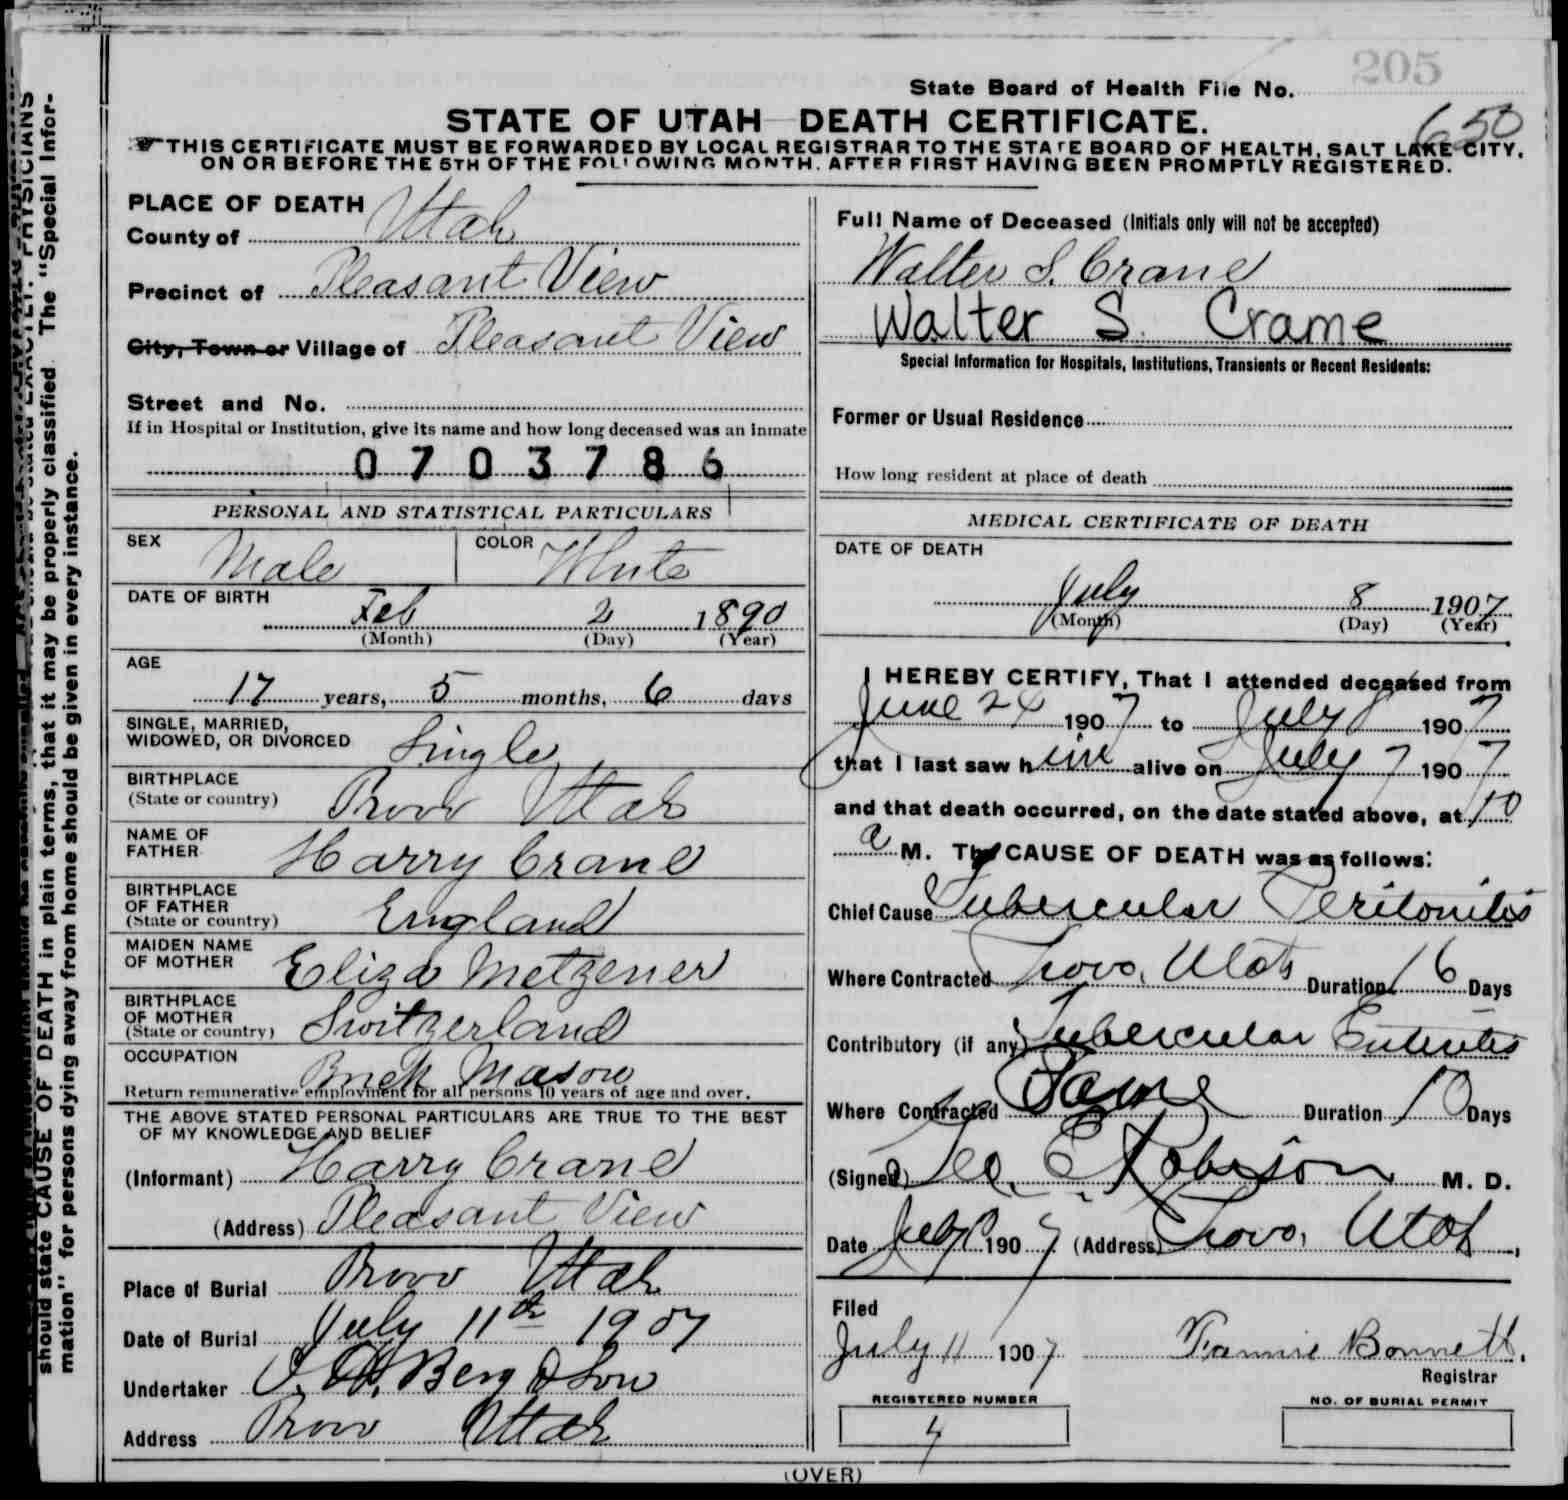 205
State Board of Health File No.
650
STATE OF UTAH—DEATH CERTIFICATE.
THIS CERTIFICATE MUST BE FORWARDED BY LOCAL REGISTRAR TO THE STATE BOARD OF HEALTH, SALT LAKE CITY,
ON OR BEFORE THE 5TH OF THE FOLLOWING MONTH. AFTER FIRST HAVING BEEN PROMPTLY REGISTERED.
PLACE OF DEATH
County of Utah
Precinct of Pleasant View
City, Town or Village of Pleasant View
Street and No.
If in Hospital or Institution, give its name and how long deceased was an inmate
0703786
PERSONAL AND STATISTICAL PARTICULARS
SEX Male COLOR White
DATE OF BIRTH
Feb 2 1890
(Month) (Day) (Year)
AGE
17 years, 5 months, 6 days
SINGLE, MARRIED,
WIDOWED, OR DIVORCED Single
BIRTHPLACE
(State or country) Provo Utah
NAME OF
FATHER Harry Crane
BIRTHPLACE
OF FATHER
(State or country) England
MAIDEN NAME
OF MOTHER Eliza Metzener
BIRTHPLACE
OF MOTHER
(State or country) Switzerland
OCCUPATION
Brick Mason
Return remunerative employment for all persons 10 years of age and over.
THE ABOVE STATED PERSONAL PARTICULARS ARE TRUE TO THE BEST
OF MY KNOWLEDGE AND BELIEF
(Informant) Harry Crane
(Address) Pleasant View
Place of Burial Provo Utah
Date of Burial July 11th 1907
Undertaker Berg & Son
Address Provo Utah
Full Name of Deceased (Initials only will not be accepted)
Walter S. Crane
Walter S. Crame
Special Information for Hospitals, Institutions, Transients or Recent Residents:
Former or Usual Residence
How long resident at place of death
MEDICAL CERTIFICATE OF DEATH
DATE OF DEATH
July 8 1907
(Month) (Day) (Year)
I HEREBY CERTIFY, That I attended deceased from
June 24 1907 to July 8 1907
that I last saw him alive on July 7 1907
and that death occurred, on the date stated above, at 10
a M. The CAUSE OF DEATH was as follows:
Chief Cause Tubercular Peritonitis
Where Contracted Provo, Utah Duration 16 Days
Contributory (if any) Tubercular Enteritis
Where Contracted Same Duration 10 Days
(Signed) Geo. E. Robison M. D.
Date July 1907 (Address) Provo, Utah,
Filed
July 11 1907 Fannie Bonnett.
Registrar
REGISTERED NUMBER
4
NO. OF BURIAL PERMIT
(OVER)
should state CAUSE OF DEATH in plain terms, that it may be properly classified. The "Special Infor-
mation" for persons dying away from home should be given in every instance.